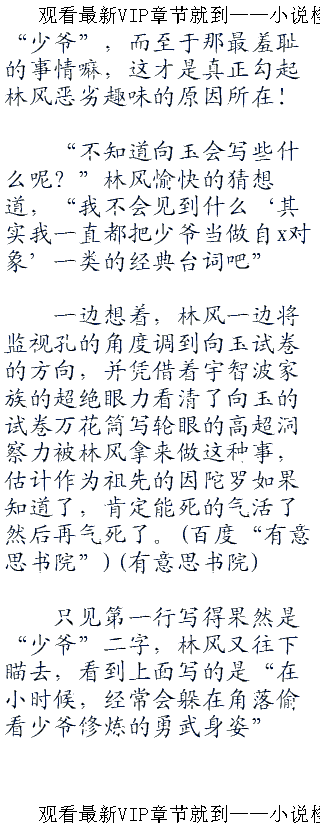 观看最新VIP章节就到——小说
“少爷”，而至于那最羞耻
的事情嘛，这才是真正勾起
林风恶劣趣味的原因所在！
“不知道向玉会写些什
么呢？”林风愉快的猜想
道，“我不会见到什么‘其
实我一直都把少爷当做自x对
象’一类的经典台词吧”
一边想着，林风一边将
监视孔的角度调到向玉试卷
的方向，并凭借着宇智波家
族的超绝眼力看清了向玉的
试卷万花筒写轮眼的高超洞
察力被林风拿来做这种事，
估计作为祖先的因陀罗如果
知道了，肯定能死的气活了
然后再气死了。(百度“有意
思书院”)(有意思书院)
只见第一行写得果然是
“少爷”二字，林风又往下
瞄去，看到上面写的是“在
小时候，经常会躲在角落偷
看少爷修炼的勇武身姿”
观看最新VIP章节就到——小说